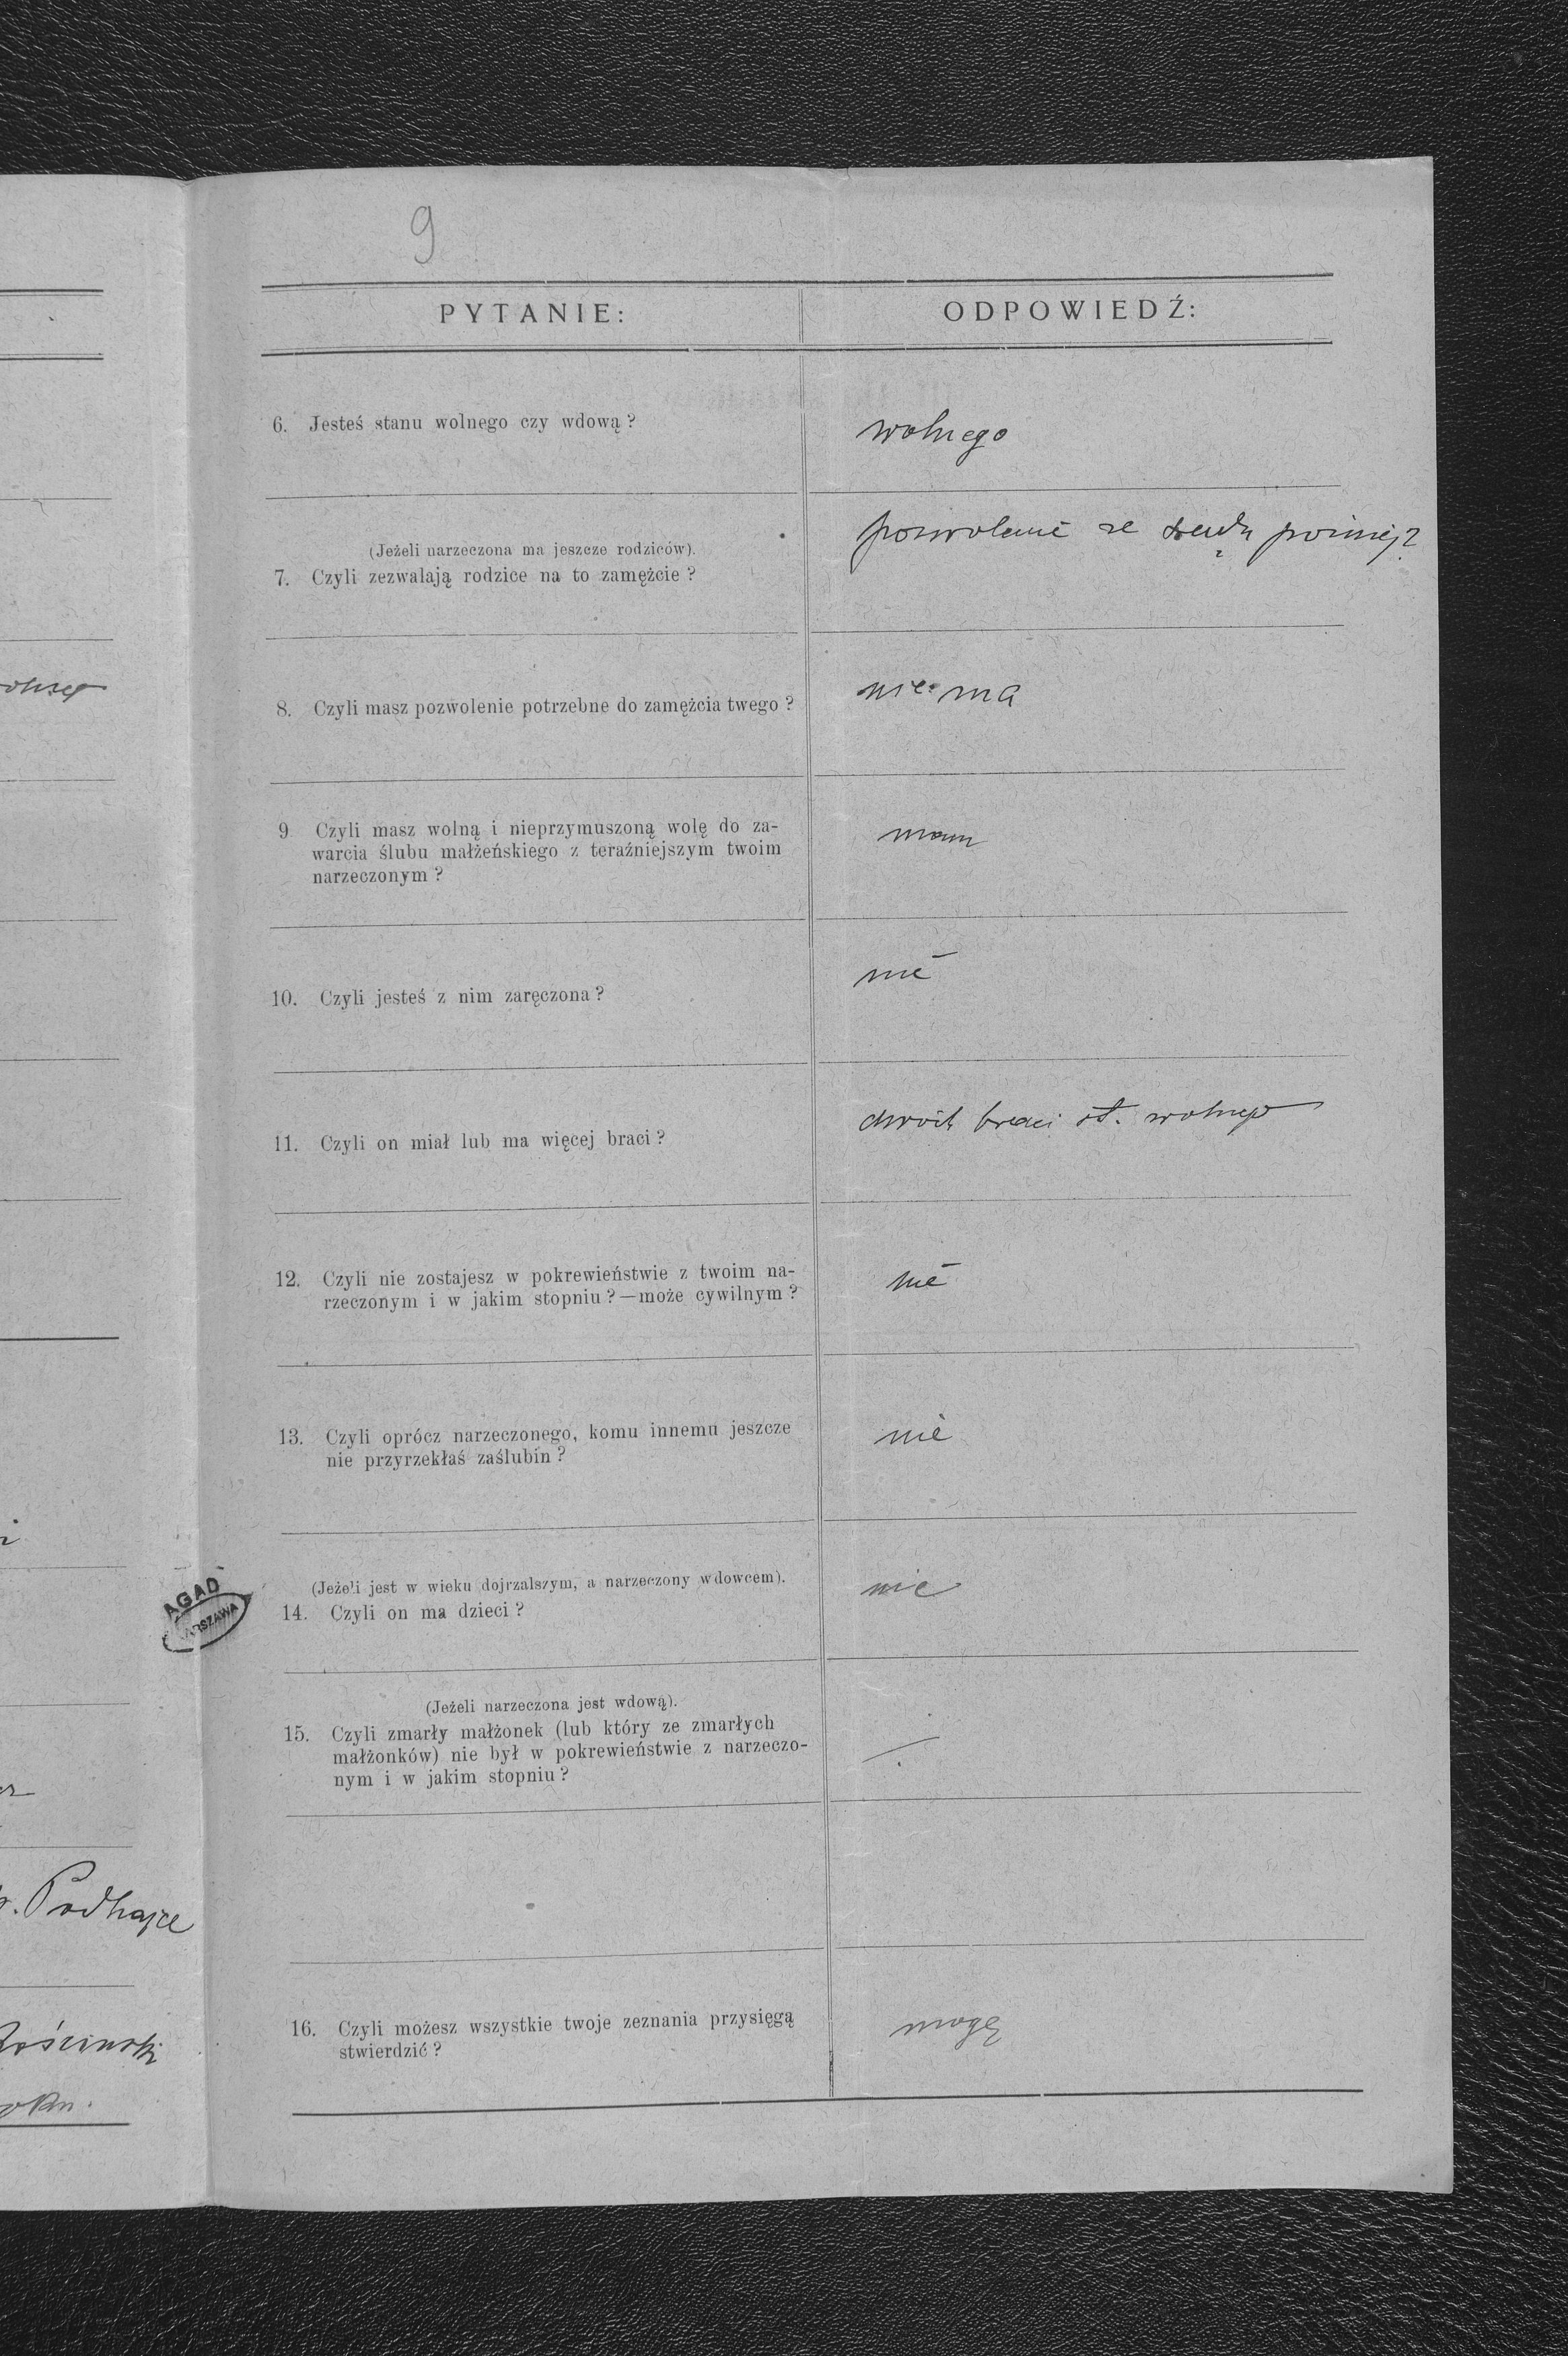 9
PYTANIE:
ODPOWIEDŹ:
6. Jesteś stanu wolnego czy wdową?
wolnego
(Jeżeli narzeczona ma jeszcze rodziców).
7. Czyli zezwalają rodzice na to zamęźcie?
pozwolenie ze
8. Czyli masz pozwolenie potrzebne do zamęźcia twego?
nie ma
9 Czyli masz wolną i nieprzymuszoną wolę do za-
warcia ślubu małżeńskiego z teraźniejszym twoim
narzeczonym?
mam
10. Czyli jesteś z nim zaręczona?
nie
11. Czyli on miał lub ma więcej braci?
dwóch braci st. wolnego
12. Czyli nie zostajesz w pokrewieństwie z twoim na-
rzeczonym i w jakim stopniu?—może cywilnym?
nie
13. Czyli oprócz narzeczonego, komu innemu jeszcze
nie przyrzekłaś zaślubin?
nie
(Jeżeli jest w wieku dojrzalszym, a narzeczony wdowcem).
14. Czyli on ma dzieci?
nie
(Jeżeli narzeczona jest wdową).
15. Czyli zmarły małżonek (lub który ze zmarłych
małżonków) nie był w pokrewieństwie z narzeczo-
nym i w jakim stopniu?
16. Czyli możesz wszystkie twoje zeznania przysięgą
stwierdzić?
mogę
AGAD
WARSZAWA
Podhajce